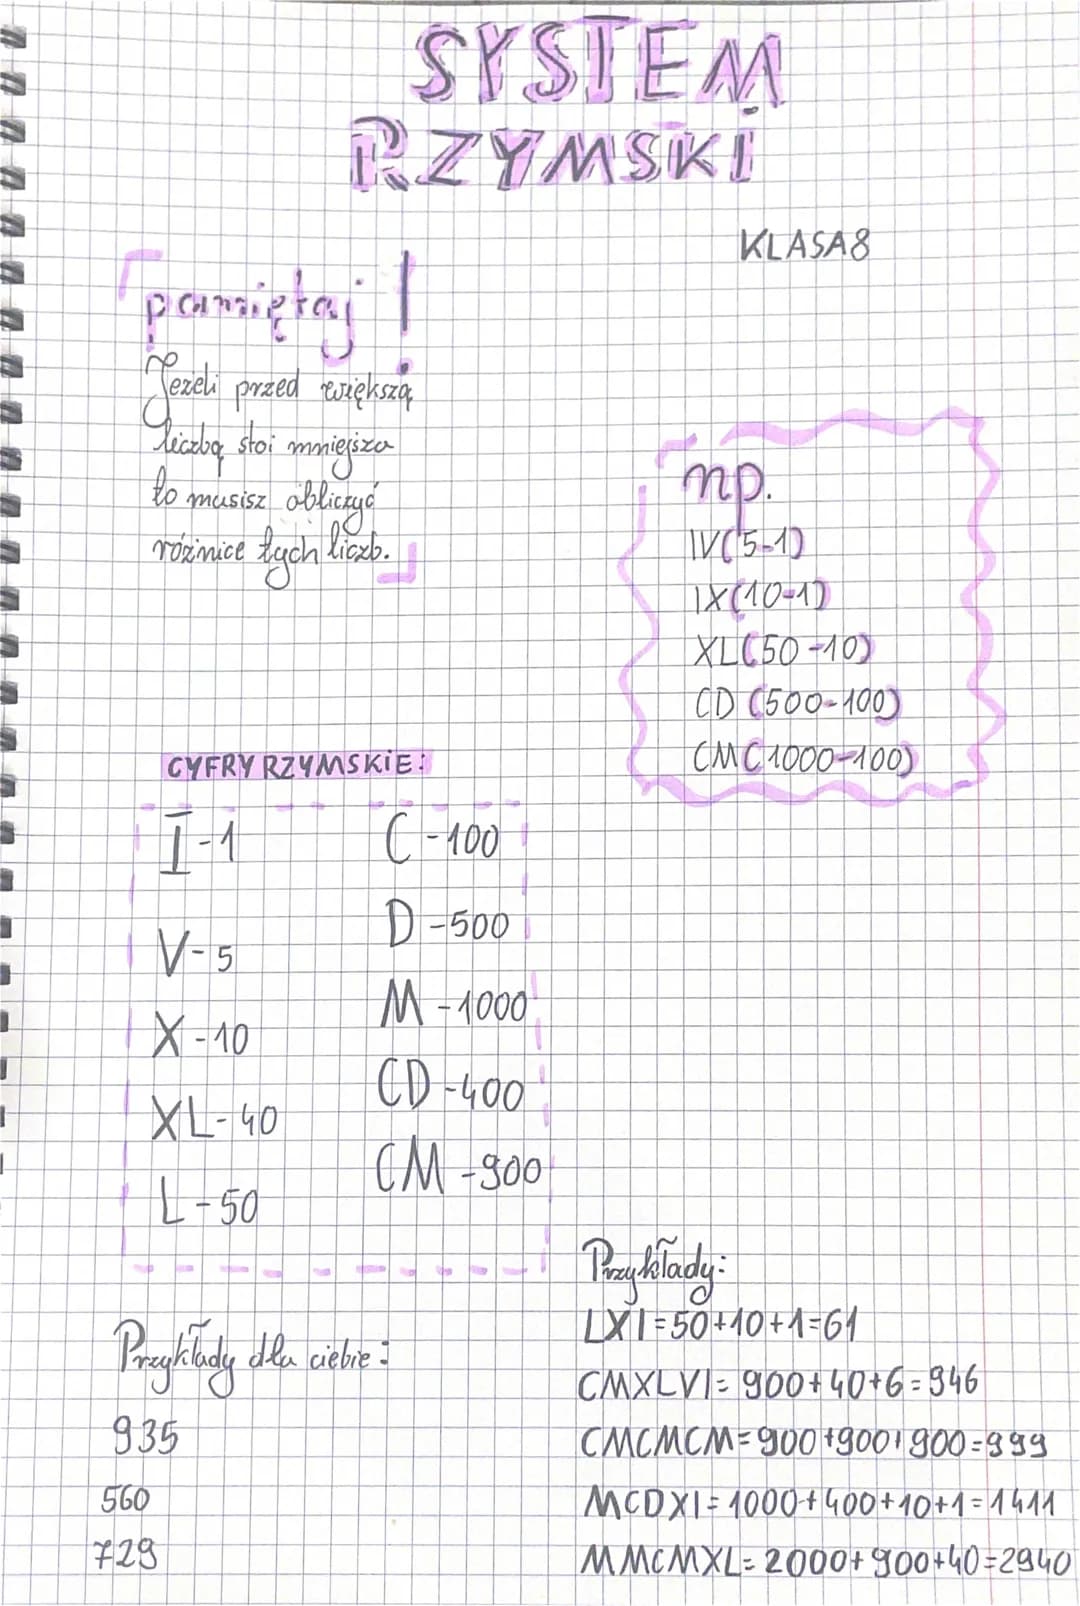 SYSTEM
RZYMSKI
KLASA8
pamiętaj!
Jeżeli przed większą
liczbą stoi mniejsza
to musisz obliczyć
róźnice tych liczb.
np.
IV(5-1)
IX(10-1)
XL(50-10)
CD (500-100)
CM(1000-100)
CYFRY RZYMSKIE:
I-1
V-5
X-10
XL-40
L-50
C-100
D-500
M-1000
CD-400
CM-900
Przykłady dla ciebie:
935
560
729
Przykłady:
LXI=50+10+1=61
CMXLVI=900+40+6=946
CMCMCM=900+900+900=999
MCDXI=1000+400+10+1=1411
MMCMXL=2000+900+40=2940